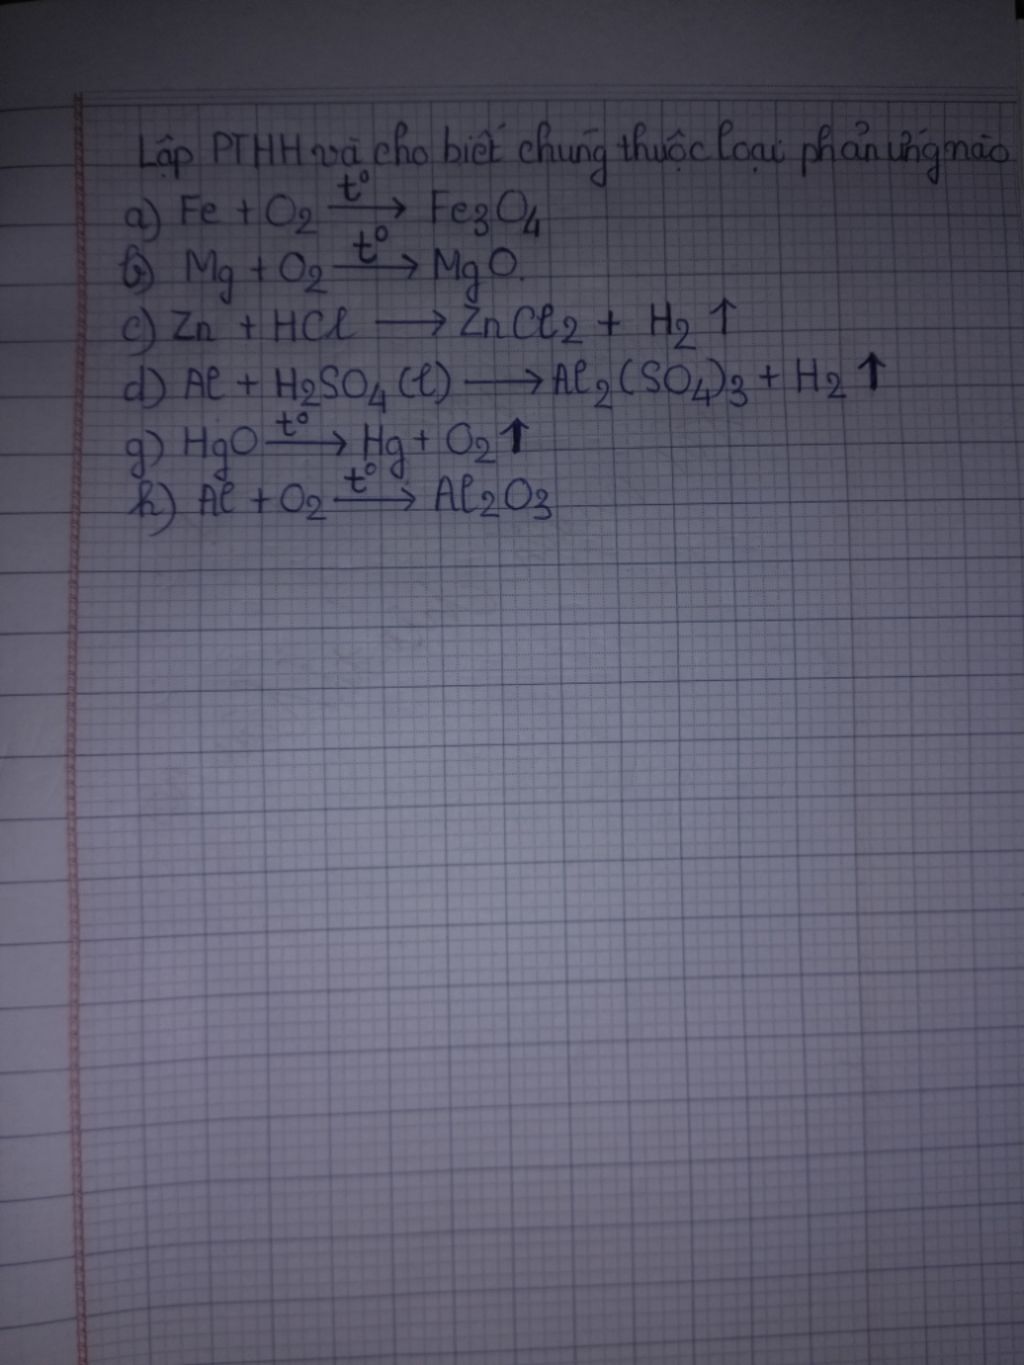 Lập PTHH và cho biết chúng thuộc loại phản ứng nào
a) Fe + O2 t° → Fe3O4
b) Mg + O2 t° → MgO.
c) Zn + HCl → ZnCl2 + H2 ↑
d) Al + H2SO4 (l) → Al2(SO4)3 + H2 ↑
g) HgO t° → Hg + O2 ↑
h) Al + O2 t° → Al2O3